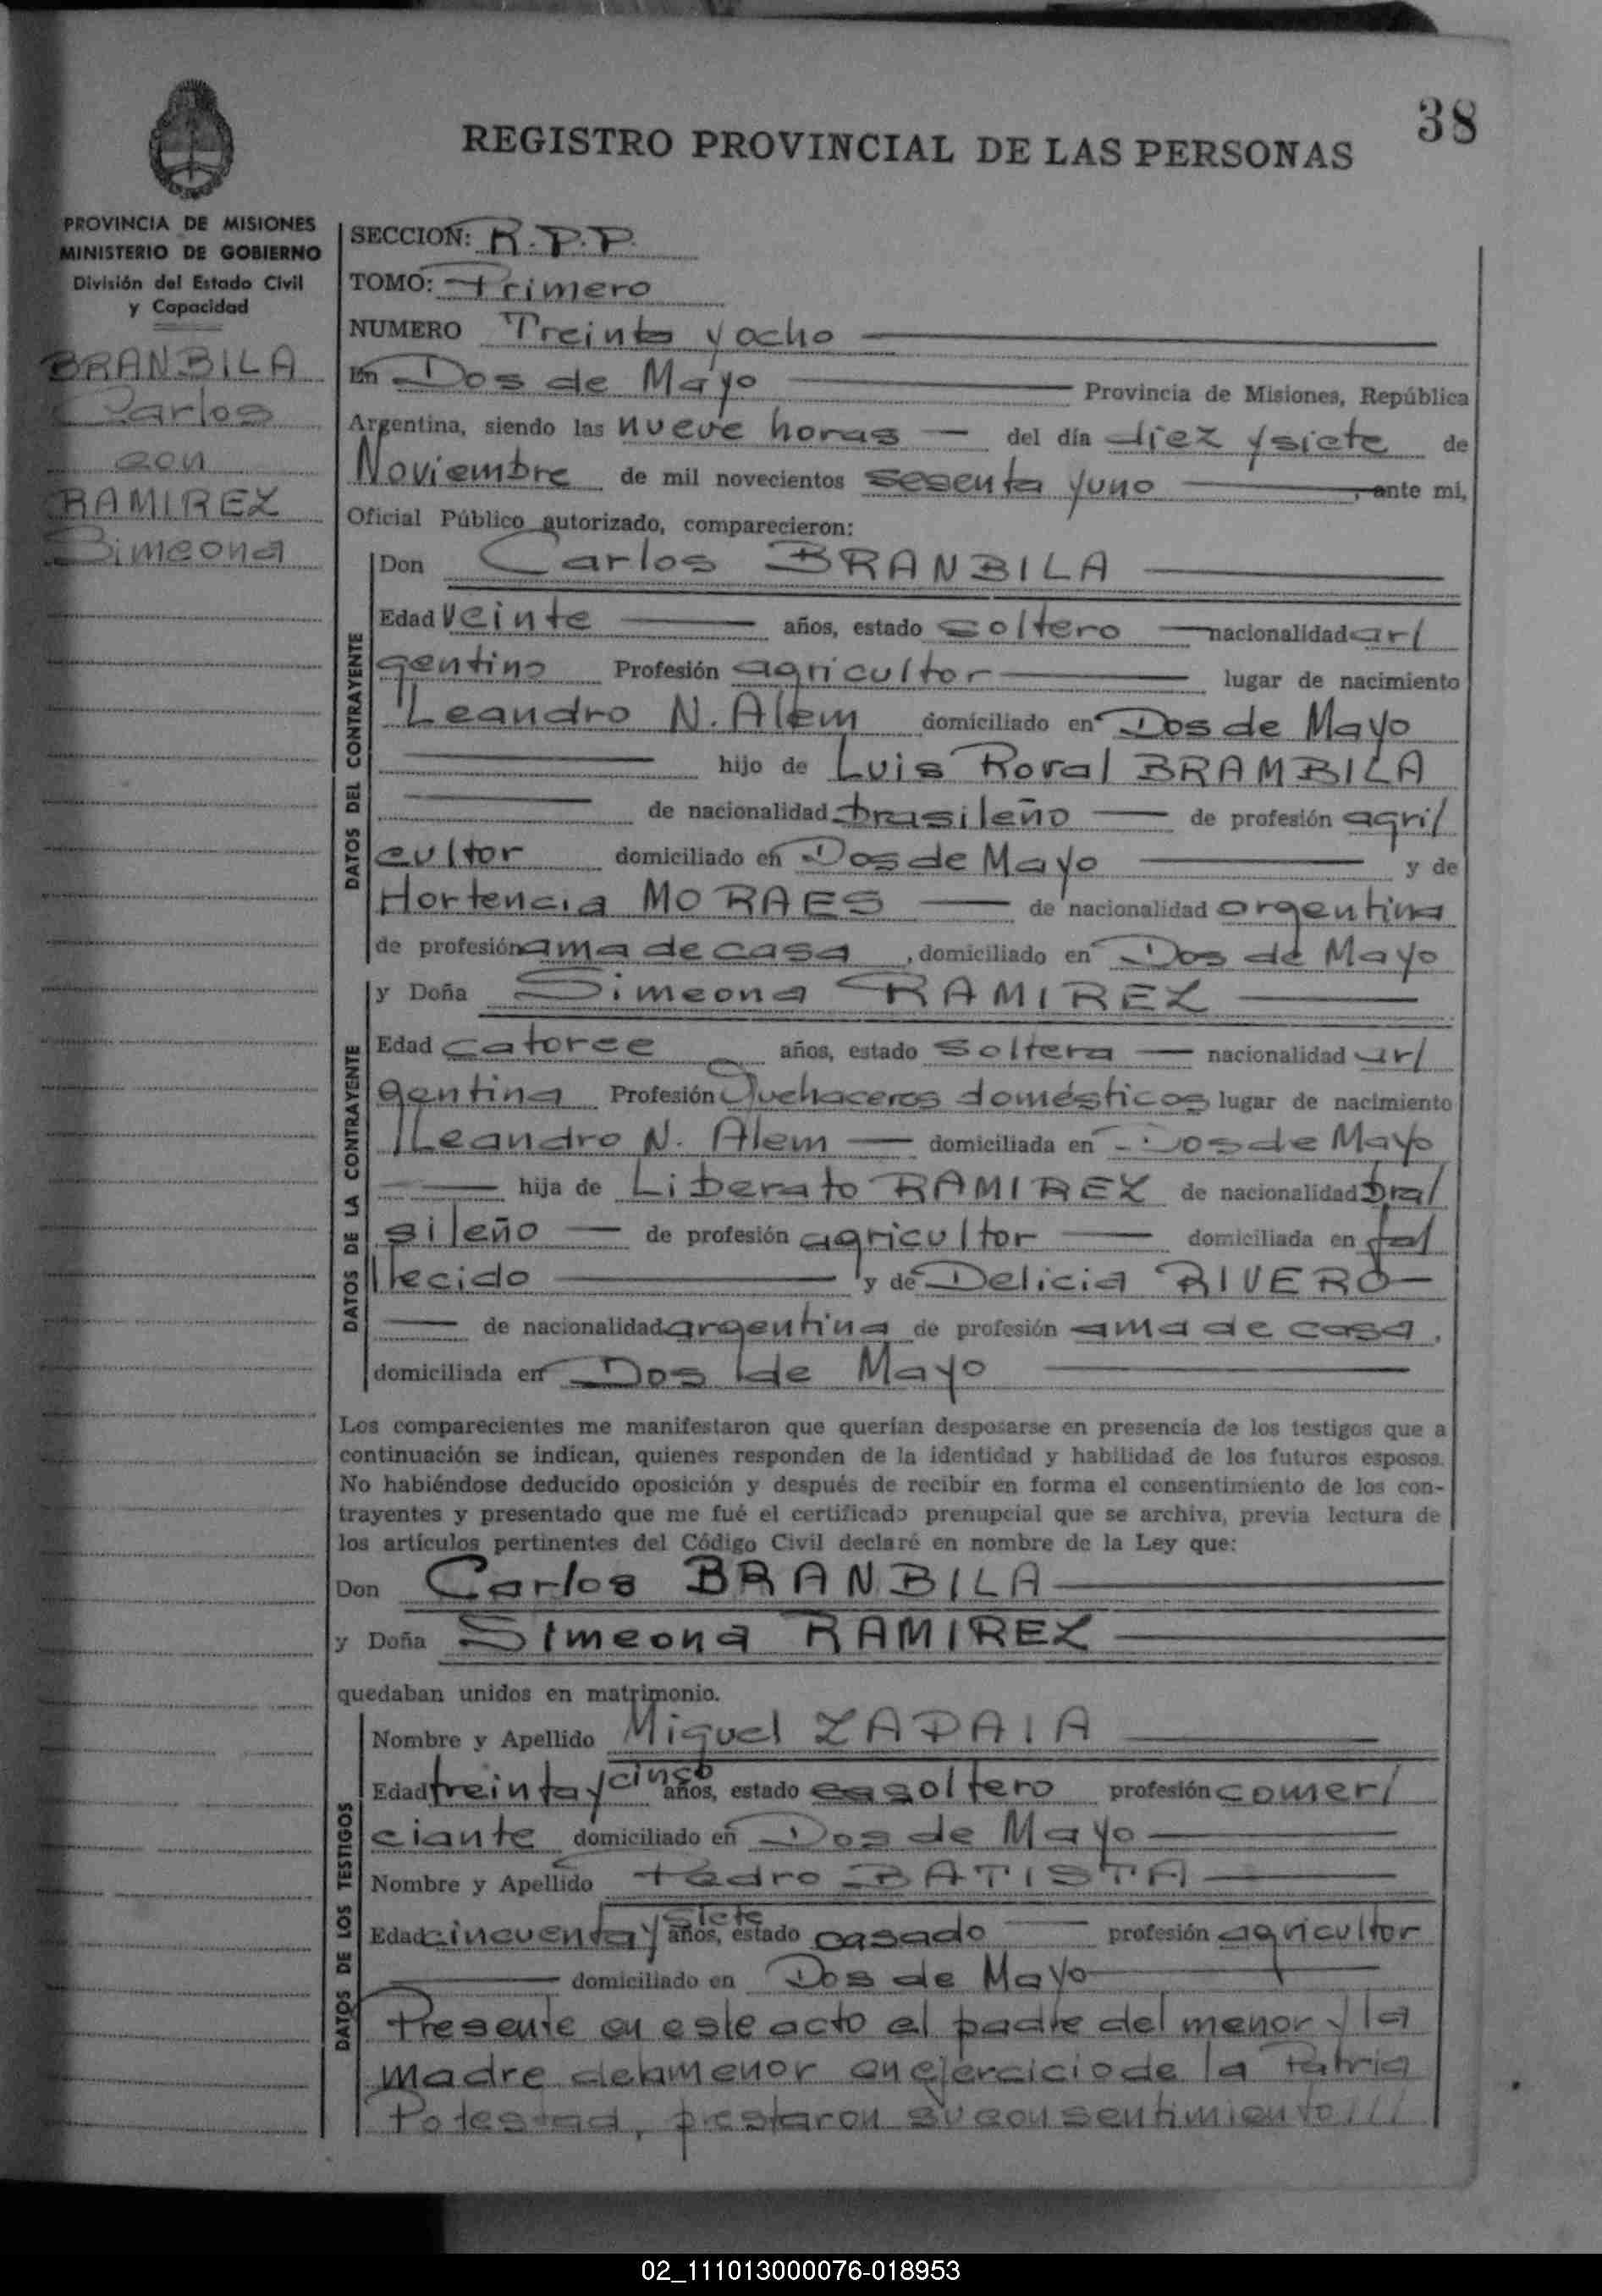 38
REGISTRO PROVINCIAL DE LAS PERSONAS
PROVINCIA DE MISIONES
MINISTERIO DE GOBIERNO
División del Estado Civil
y Capacidad
BRANBILA
Carlos
con
RAMIREZ
Simeona
SECCION: R.P.P.
TOMO: Primero
NUMERO Treinta y ocho
En Dos de Mayo Provincia de Misiones, República
Argentina, siendo las nueve horas — del día diez y siete de
Noviembre de mil novecientos sesenta y uno , ante mi,
Oficial Público autorizado, comparecieron:
DATOS DEL CONTRAYENTE
Don Carlos BRANBILA
Edad veinte años, estado soltero — nacionalidad ar/
gentino Profesión agricultor lugar de nacimiento
Leandro N. Alem domiciliado en Dos de Mayo
hijo de Luis Roval BRAMBILA
de nacionalidad brasileño — de profesión agri/
cultor domiciliado en Dos de Mayo y de
Hortencia MORAES — de nacionalidad argentina
de profesión ama de casa , domiciliado en Dos de Mayo
DATOS DE LA CONTRAYENTE
y Doña Simeona RAMIREZ
Edad catorce años, estado soltera — nacionalidad ar/
gentina Profesión Quehaceros domésticos lugar de nacimiento
Leandro N. Alem — domiciliada en Dos de Mayo
hija de Liberato RAMIREZ de nacionalidad bra/
sileño — de profesión agricultor — domiciliada en fal
llecido y de Delicia RIVERO —
de nacionalidad argentina de profesión ama de casa,
domiciliada en Dos de Mayo
Los comparecientes me manifestaron que querían desposarse en presencia de los testigos que a
continuación se indican, quienes responden de la identidad y habilidad de los futuros esposos.
No habiéndose deducido oposición y después de recibir en forma el consentimiento de los con-
trayentes y presentado que me fué el certificado prenupcial que se archiva, previa lectura de
los artículos pertinentes del Código Civil declaré en nombre de la Ley que:
Don Carlos BRANBILA
y Doña Simeona RAMIREZ
quedaban unidos en matrimonio.
DATOS DE LOS TESTIGOS
Nombre y Apellido Miguel ZAPAIA
Edad treinta y cinco años, estado soltero profesión comer/
ciante domiciliado en Dos de Mayo
Nombre y Apellido Pedro BATISTA
Edad cincuenta y siete años, estado casado — profesión agricultor
domiciliado en Dos de Mayo
Presente en este acto el padre del menor y la
madre dela menor en ejercicio de la Patria
Potestad, prestaron su consentimiento///
02_111013000076-018953